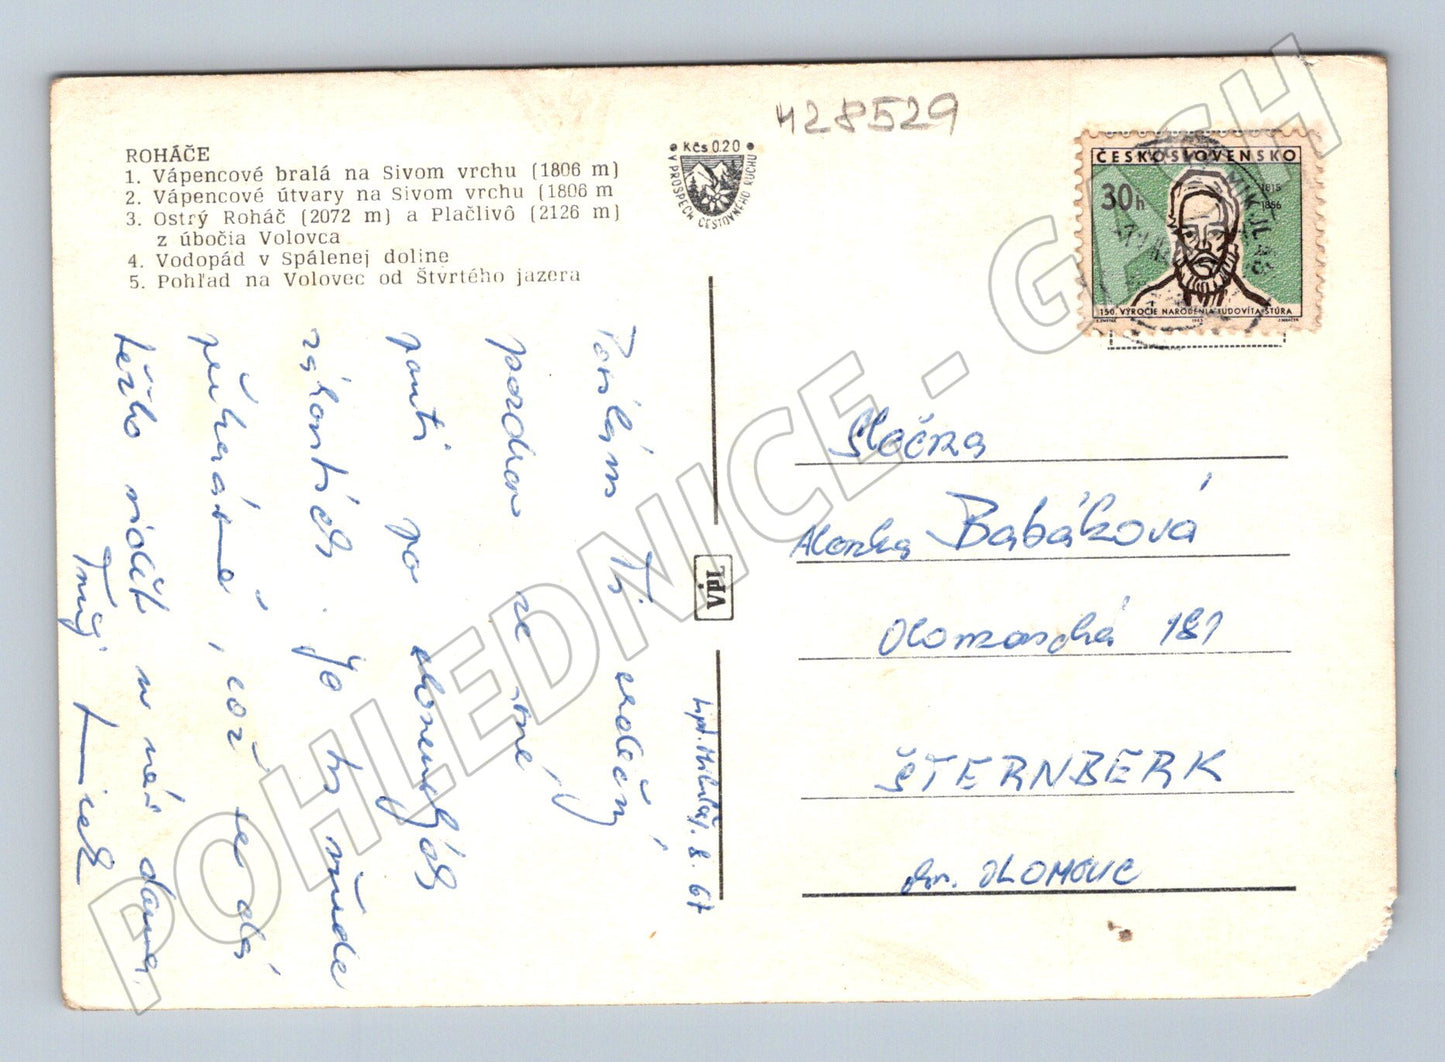 428529
ROHÁČE
1. Vápencové bralá na Sivom vrchu (1806 m)
2. Vápencové útvary na Sivom vrchu (1806 m
3. Ostrý Roháč (2072 m) a Plačlivô (2126 m)
z úbočia Volovca
4. Vodopád v Spálenej doline
5. Pohľad na Volovec od Štvrtého jazera
Kčs 0.20
V PROSPECH CESTOVNÉHO RUCHU
ČESKOSLOVENSKO
30h
1815
1856
150. VÝROČIE NARODENIA ĽUDOVÍTA ŠTÚRA
Posílám Ti srdečný
pozdrav ze své
pouti po slovenských
zákoutích. Je to všude
překrásné, což se dá
těžko vidět u nás doma.
Tvůj
VPL
Lipt. Mikuláš. 8. 67
Slečna
Alenka Babáková
Olomoucká 181
ŠTERNBERK
okr. OLOMOUC
POHLEDNICE - GASH